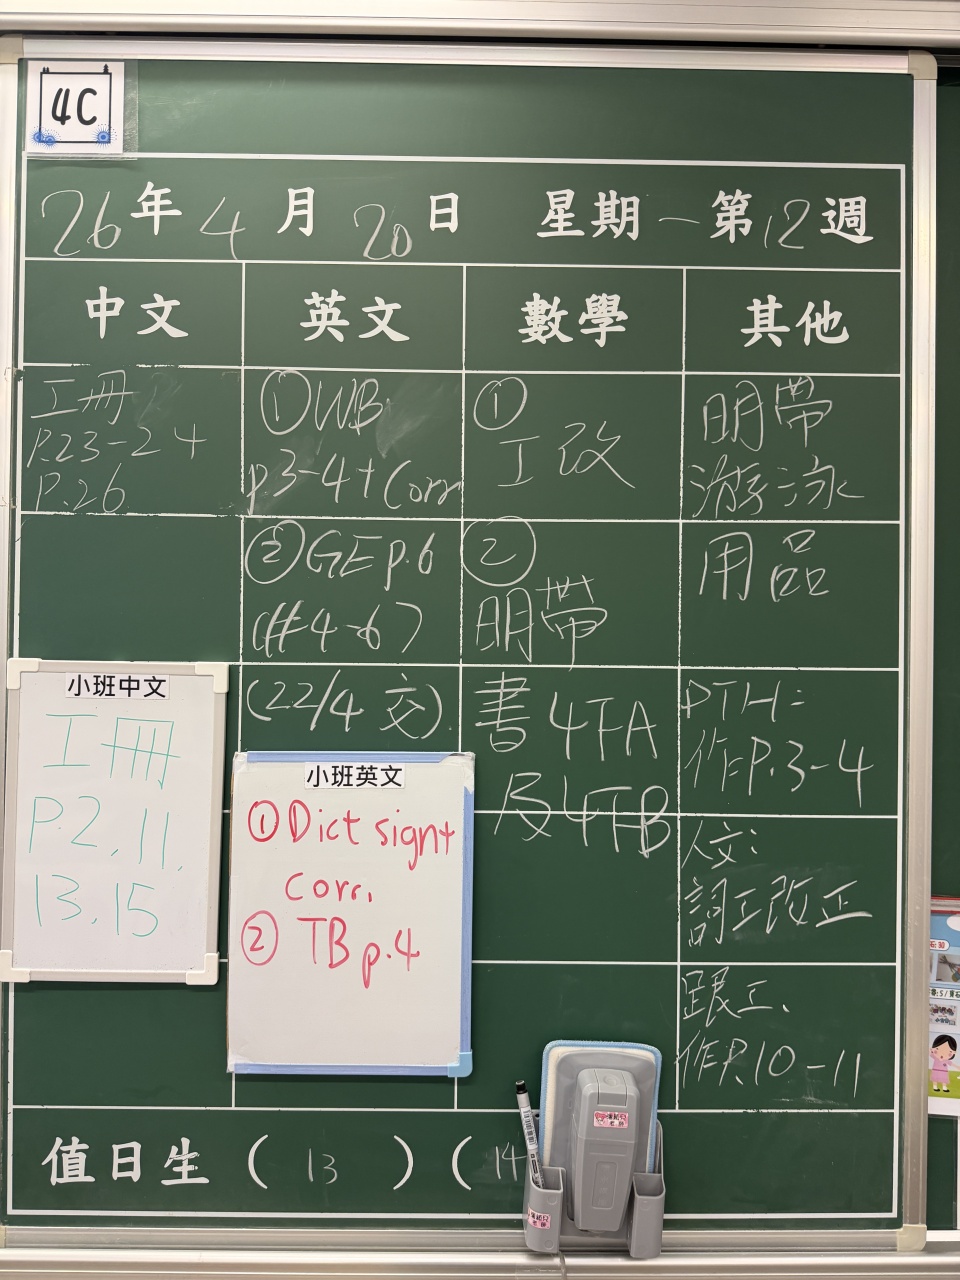 4C
26年4月20日 星期一 第12週
中文 英文 數學 其他
工冊
P.23-24
P.26
①WB
p3-4+Corr
②GE p.6
(#4-6)
(22/4 交)
①
工改
②
明帶
書4TA
及4TB
明帶
游泳
用品
PTH:
作P.3-4
人文:
詞工改正
跟工、
作P.10-11
小班中文
工冊
P.2,11,
13,15
小班英文
①Dict sign+
corr.
②TB p.4
值日生(13)(14